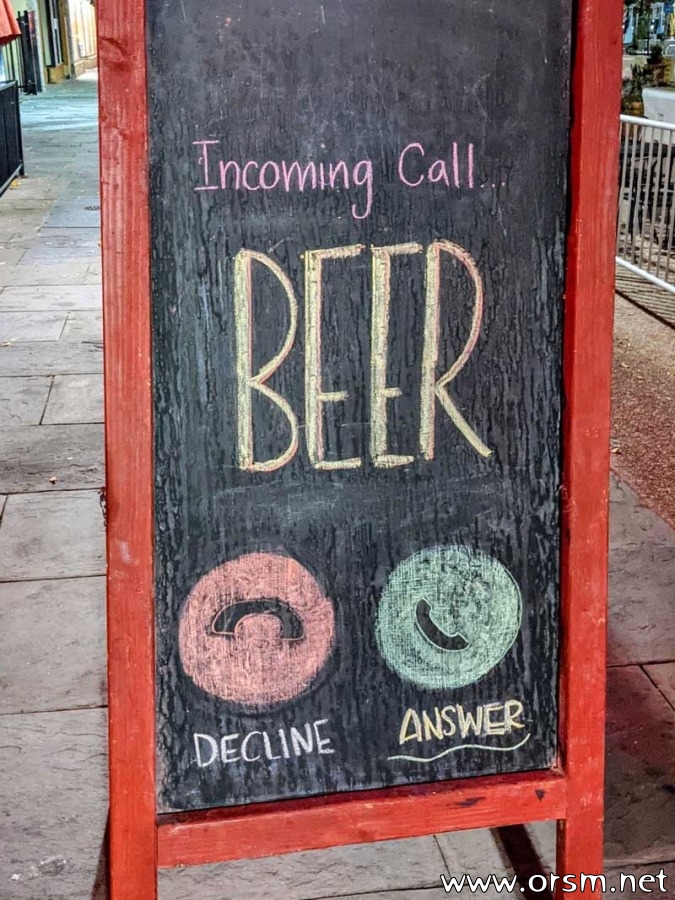 Incoming Call...
BEER
DECLINE ANSWER
www.orsm.net